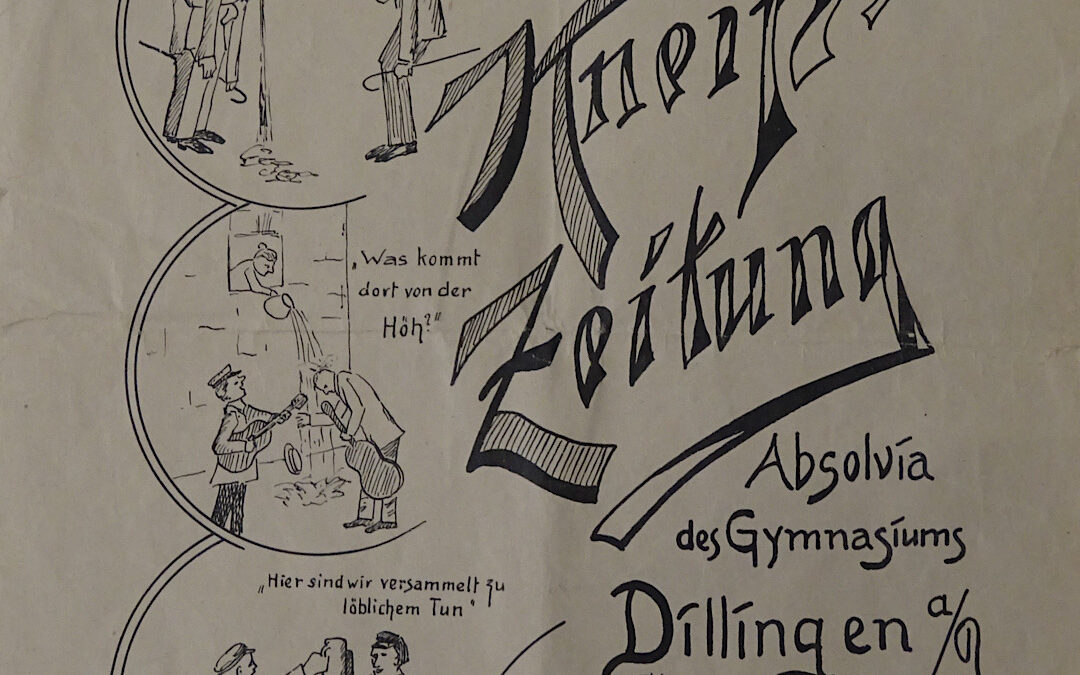 Kneip-
Zeitung
„Was kommt
dort von der
Höh?"
Absolvia
des Gymnasiums
„Hier sind wir versammelt zu
löblichem Tun"
Dillingen a/D